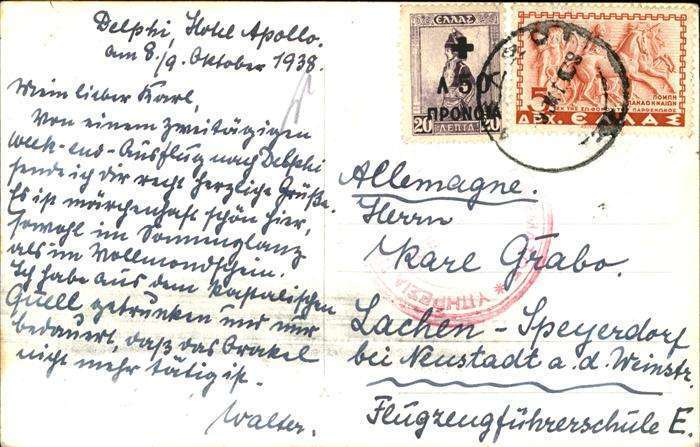 Delphi, Hotel Apollo.
am 8./9. Oktober 1938.
Mein lieber Karl,
Von einem zweitägigen
Week-end-Ausflug nach Delphi
sende ich dir recht herzliche Grüße.
Es ist märchenhaft schön hier,
sowohl im Sonnenglanz
als im Vollmondschein.
Ich habe aus dem kastalischen
Quell getrunken und nur
bedauert, daß das Orakel
nicht mehr tätig ist.
Walter.
ΕΛΛΑΣ
Λ 50
ΠΡΟΝΟΙΑ
20 ΛΕΠΤΑ 20
5
ΠΟΜΠΗ
ΠΑΝΑΘΗΝΑΙΩΝ
ΔΡΧ. ΕΛΛΑΣ
ΥΠΗΡΕΣΙΑ
Allemagne.
Herrn
Karl Grabo.
Lachen-Speyerdorf
bei Neustadt a. d. Weinstr.
Flugzeugführerschule E.